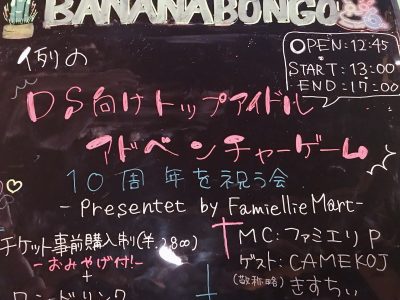 BANANABONGO
OPEN:12:45
START:13:00
END:17:00
例の
DS向けトップアイドル
アドベンチャーゲーム
10周年を祝う会
- Presentet by FamiellieMart-
チケット事前購入制(¥.2800)
-おみやげ付!-
+
ワンドリンク
MC:ファミエリP
ゲスト:CAMEKOJ
(敬称略)きすちぃ